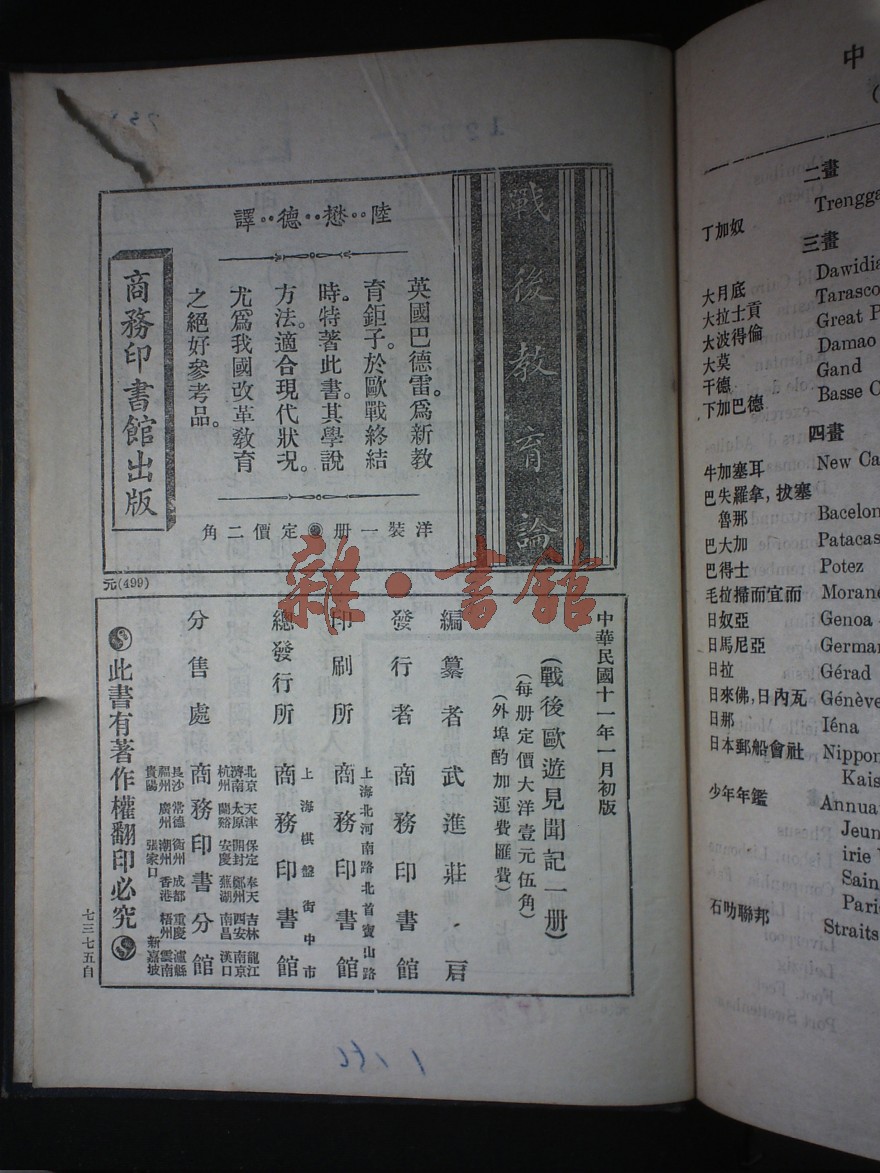 戰後教育論
英國巴德雷。爲新教
育鉅子。於歐戰終結
時。特著此書。其學說
方法。適合現代狀況。
尤爲我國改革教育
之絕好參考品。
陸‥懋‥德‥譯
商務印書館出版
洋裝一册 定價二角
元(499)
中華民國十一年一月初版
(戰後歐遊見聞記一册)
(每册定價大洋壹元伍角)
(外埠酌加運費匯費)
編纂者 武進莊
發行者 商務印書館
印刷所 上海北河南路北首寶山路 商務印書館
總發行所 上海棋盤街中市 商務印書館
分售處 商務印書分館
北京 天津 保定 奉天 吉林 龍江
濟南 太原 開封 鄭州 西安 南京
杭州 蘭谿 安慶 蕪湖 南昌 漢口
長沙 常德 衡州 成都 重慶 瀘縣
福州 廣州 潮州 香港 梧州 雲南
貴陽 張家口 新嘉坡
此書有著作權翻印必究
七三七五自
雜·書館
中
二畫
丁加奴 Trengga
三畫
大月底 Dawidia
大拉士貢 Tarasco
大波得倫 Great P
大莫 Damao
干德 Gand
下加巴德 Basse C
四畫
牛加塞耳 New Ca
巴失羅拿, 拔塞
魯那 Bacelon
巴大加 Patacas
巴得士 Potez
毛拉掃而宜而 Morane
日奴亞 Genoa
日馬尼亞 German
日拉 Gérad
日來佛, 日內瓦 Génève
日那 Iéna
日本郵船會社 Nippon
Kais
少年年鑑 Annua
Jeun
irie
Sain
Pari
石叻聯邦 Straits